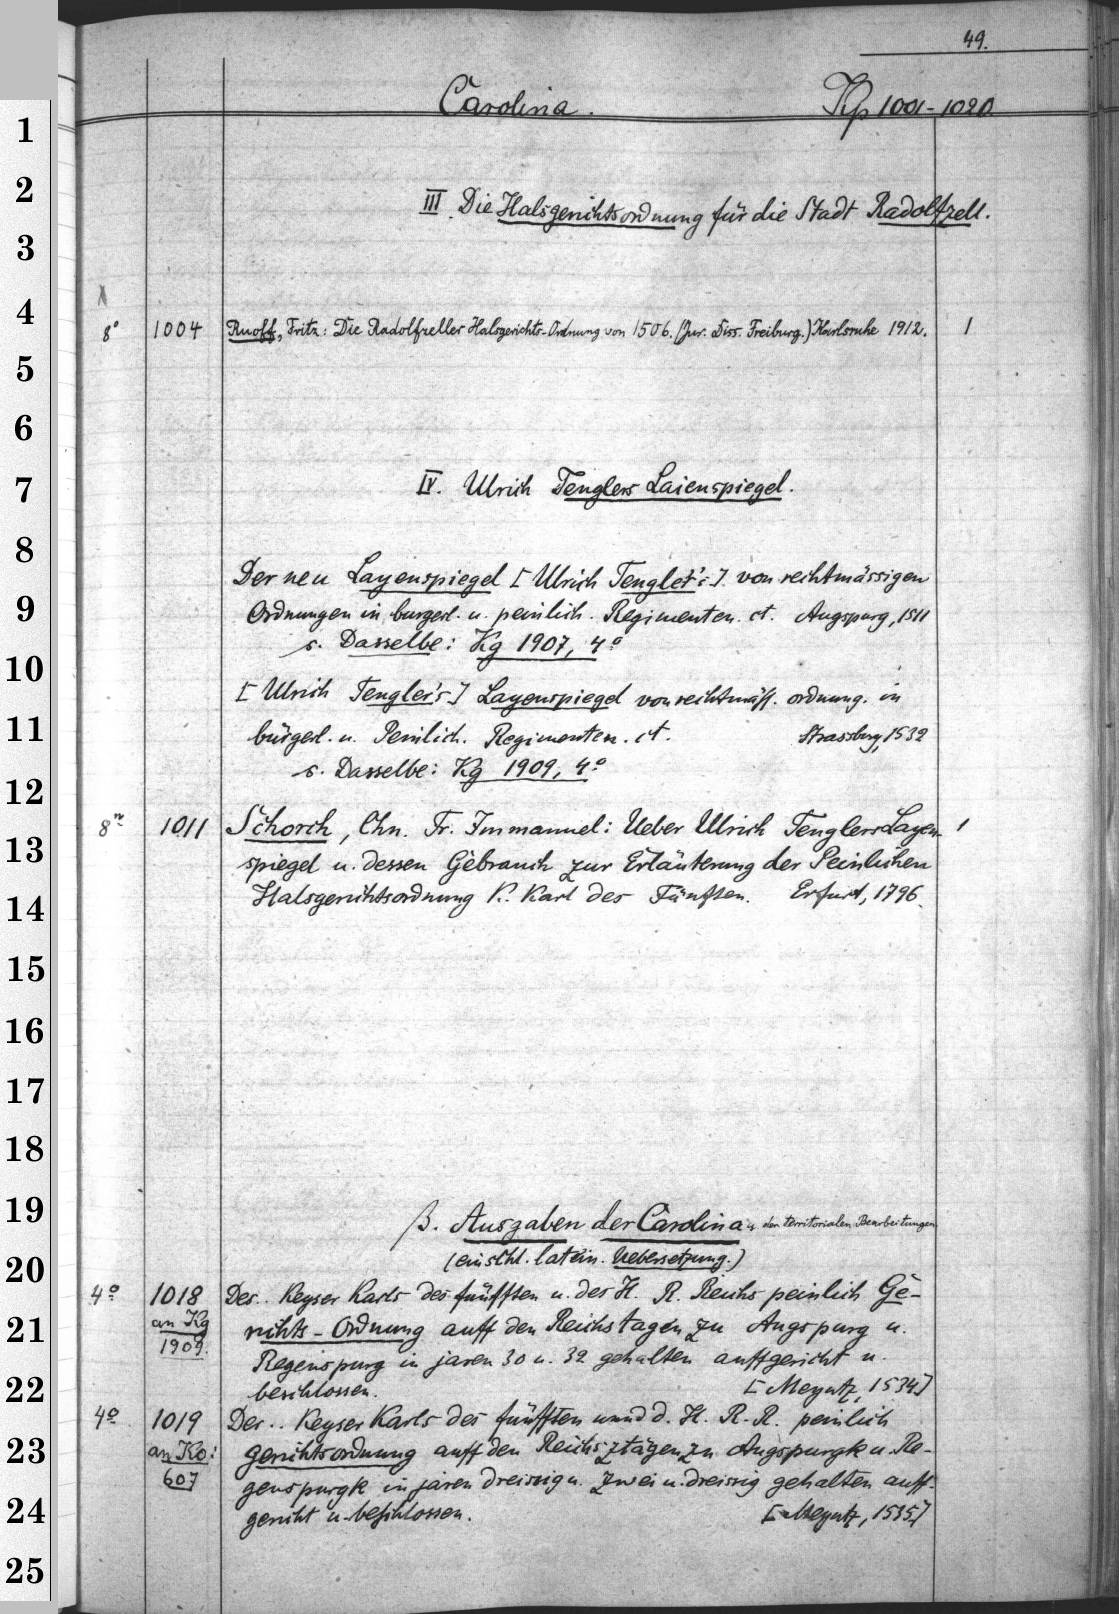 49.
Carolina. Kp 1001-1020
III. Die Halsgerichtsordnung für die Stadt Radolfzell.
8° 1004 Ruoff, Fritz: Die Radolfzeller Halsgerichts-Ordnung von 1506. (Jur. Diss. Freiburg.) Karlsruhe 1912. 1
IV. Ulrich Tenglers Laienspiegel.
Der neu Layenspiegel [Ulrich Tengler's]. von rechtmässigen
Ordnungen in burgerl. u. peinlich. Regimenten. ct. Augspurg, 1511
s. Dasselbe: Kg 1907, 4°
[Ulrich Tengler's] Layenspiegel von rechtmäss. ordnung. in
bürgerl. u. Peinlich. Regimenten. ct. Strassburg, 1532
s. Dasselbe: Kg 1909, 4°
8° 1011 Schorch, Chn. Fr. Immanuel: Ueber Ulrich Tenglers Layen- 1
spiegel u. dessen Gebrauch zur Erläuterung der Peinlichen
Halsgerichtsordnung K. Karl des Fünften. Erfurt, 1796.
β. Ausgaben der Carolina u. der territorialen Bearbeitungen
(einschl. latein. Uebersetzung.)
4° 1018 Des.. Keyser Karls des fünfften u. des H. R. Reichs peinlich Ge-
an Kg richts-Ordnung auff den Reichstagen zu Augspurg u.
1909. Regenspurg in jaren 30 u. 32 gehalten auffgericht u.
beschlossen. [Meyntz, 1534]
4° 1019 Des.. Keyser Karls des fünfften unnd d. H. R. R. peinlich
an Ko: gerichtsordnung auff den Reichsztägen zu Augspurgk u. Re-
607 genspurgk in jaren dreissig u. zwei u. dreissig gehalten auff-
gericht u. beschlossen. [Meyntz, 1535]
1
2
3
4
5
6
7
8
9
10
11
12
13
14
15
16
17
18
19
20
21
22
23
24
25